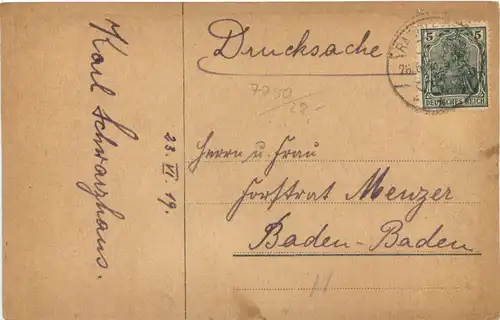 Karl Schwarzhans.
23. VI. 19.
Drucksache
7850
28,-
5 5
DEUTSCHES REICH
Herrn u. Frau
Forstrat Menzer
Baden-Baden